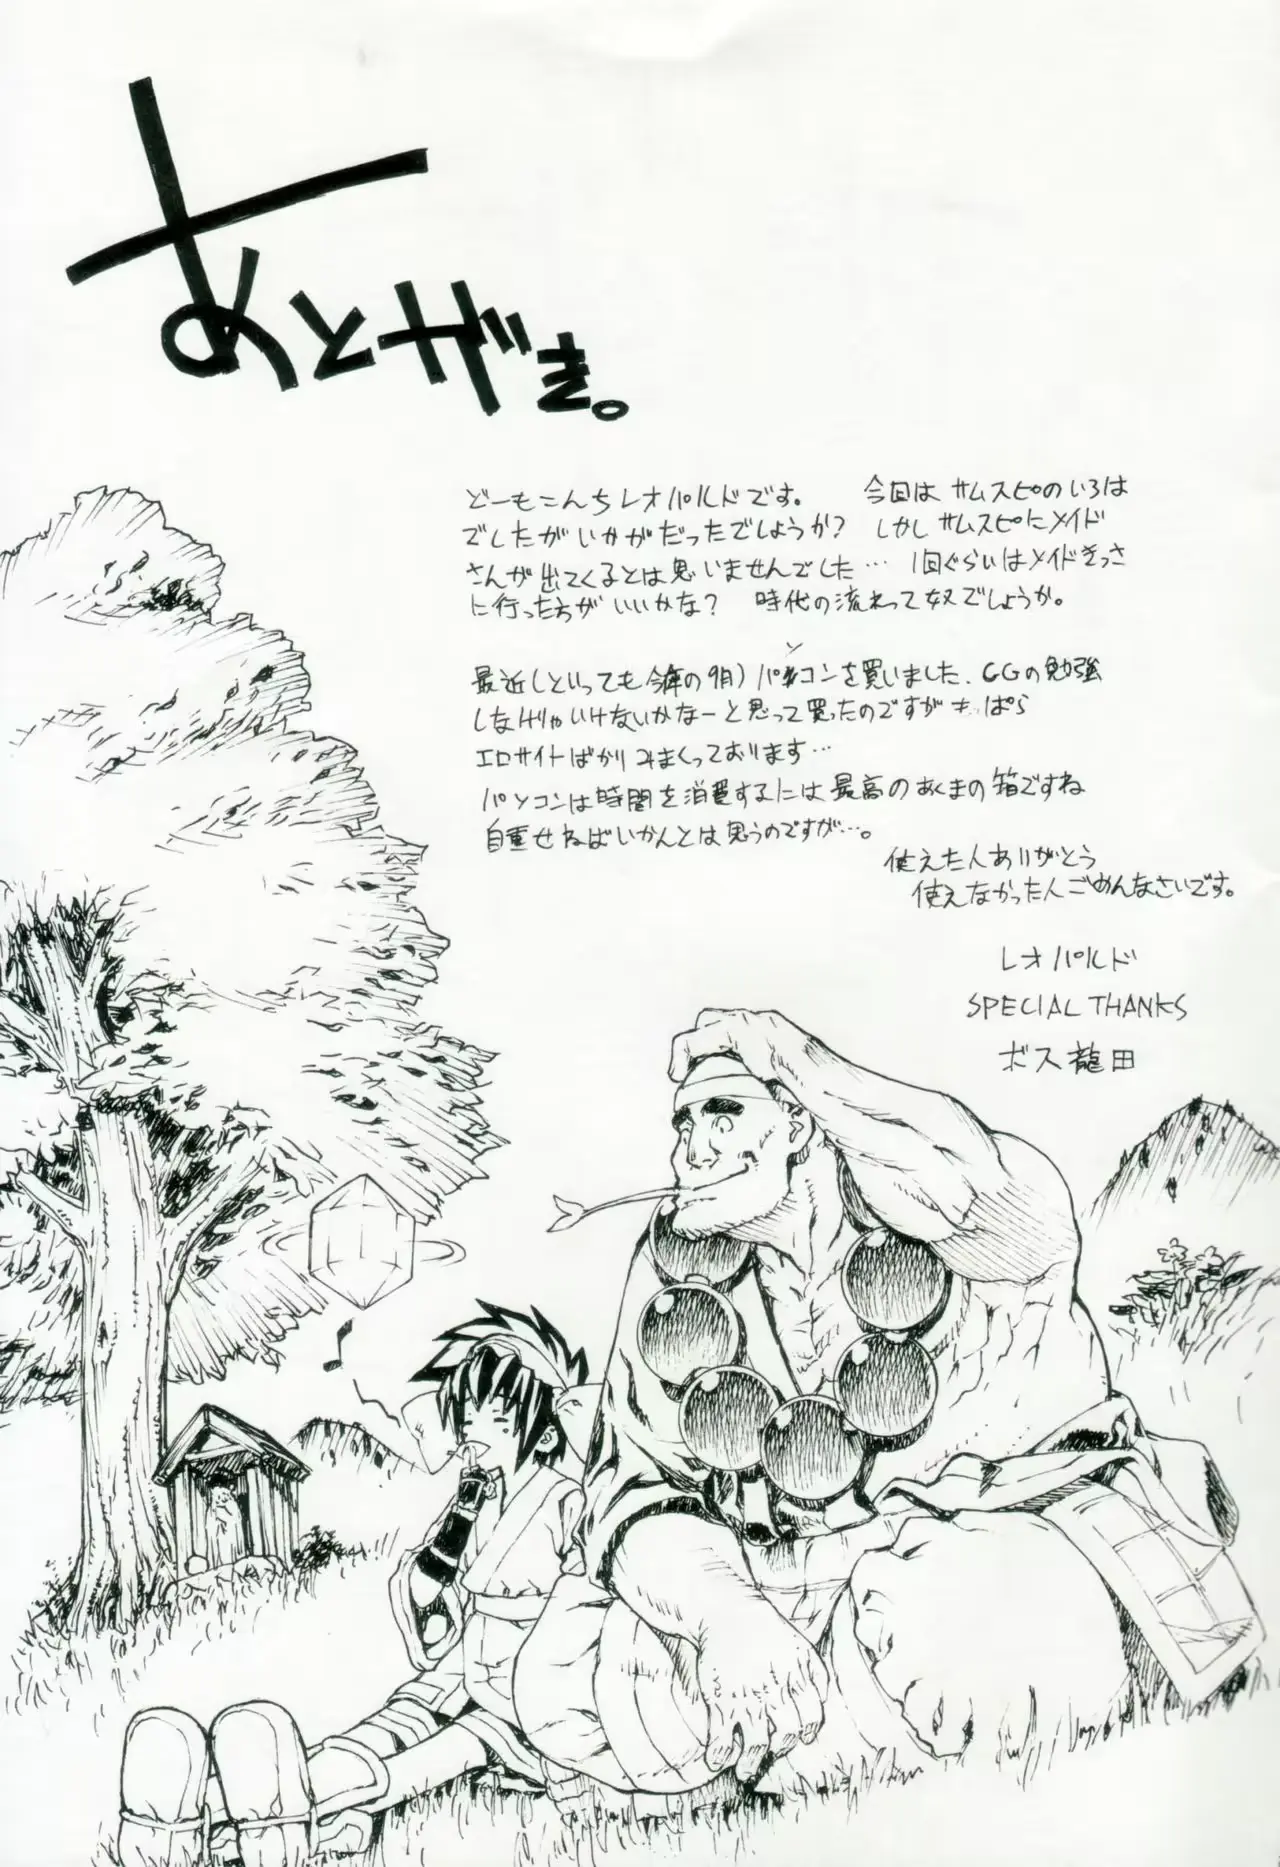 あとがき。
どーもこんちレオパルドです。 今回はサムスピのいろは
でしたがいかがだったでしょうか? しかしサムスピにメイド
さんが出てくるとは思いませんでした… 1回ぐらいはメイドきっさ
に行った方がいいかな? 時代の流れって奴でしょうか。
最近(といっても今年の9月)パソコンを買いました、CGの勉強
しなけりゃいけないかなーと思って買ったのですが もっぱら
エロサイトばかりみまくっております…
パソコンは時間を消費するには最高のあくまの箱ですね
自重せねばいかんとは思うのですが…。
使えた人ありがとう
使えなかった人ごめんなさいです。
レオパルド
SPECIAL THANKS
ボス龍田